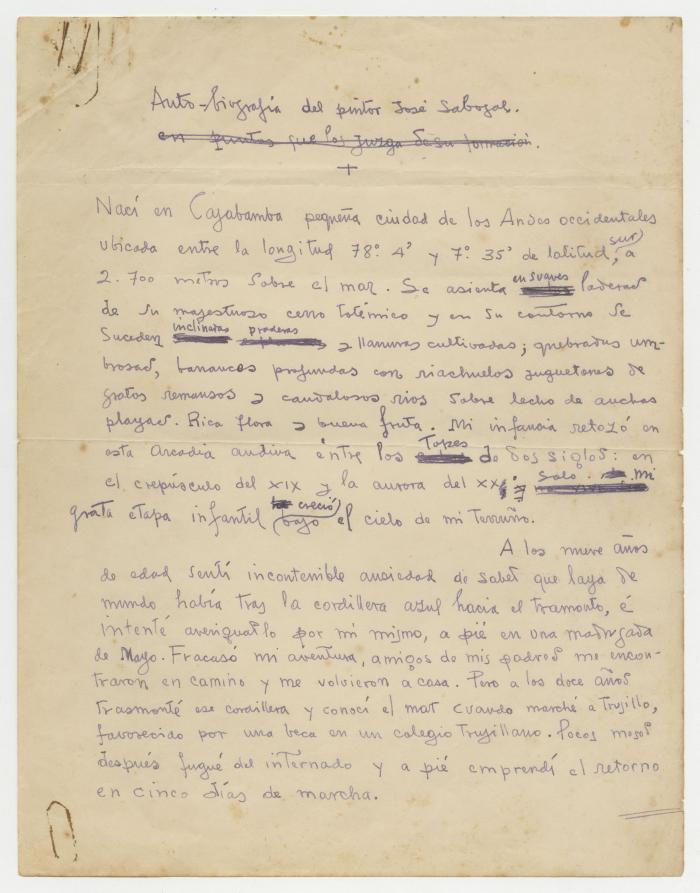 Auto-biografía del pintor José Sabogal.
en puntos que los juzga de su formación.
+
Nací en Cajabamba pequeña ciudad de los Andes occidentales
ubicada entre la longitud 78º. 4' y 7º. 35' de latitud, sur, a
2.700 metros sobre el mar. Se asienta en suaves laderas
de su majestuoso cerro totémico y en su contorno se
suceden inclinadas praderas y llanuras cultivadas; quebradas um-
brosas, barrancos profundos con riachuelos juguetones de
gratos remansos y caudalosos rios sobre lecho de anchas
playas. Rica flora y buena fruta. Mi infancia retozó en
esta Arcadia andina éntre los Topes de dos siglos: en
el crepúsculo del XIX y la aurora del XX; y solo. Mi
grata etapa infantil creció bajo el cielo de mi Terruño.
A los nueve años
de edad sentí incontenible ansiedad de saber que laya de
mundo había tras la cordillera azul hacia el tramonto, é
intenté averiguarlo por mi mismo, a pié en una madrugada
de Mayo. Fracasó mi aventura, amigos de mis padres me encon-
traron en camino y me volvieron a casa. Pero a los doce años
trasmonté ese cordillera y conocí el mar cuando marché a Trujillo,
favorecido por una beca en un colegio Trujillano. Pocos meses
después fugué del internado y a pié emprendí el retorno
en cinco días de marcha.